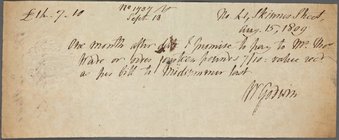 £14.7.10 No 1927/10 No 41, Skinner Street,
Sept. 18 Aug. 15, 1809
One month after date I promise to pay to Mr. Thos
Wade or order fourteen pounds 7/10: value recd
as per bill to Midsummer last
W Godwin